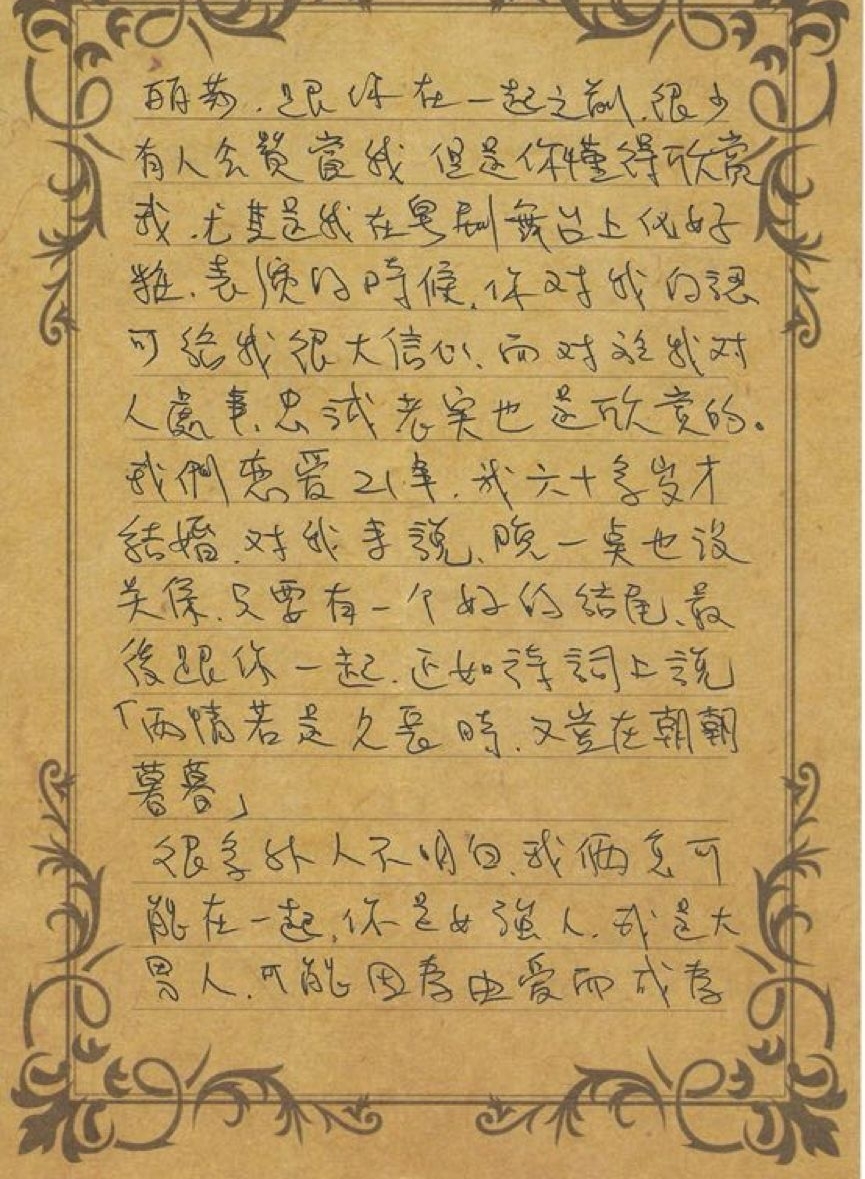 丽芬.跟你在一起之前.很少
有人会赞賞我 但是你懂得欣赏
我.尤其是我在粤剧舞台上化好
粧.表演的時候.你对我的認
可給我很大信心.而对於我对
人處事.忠誠老実也是欣赏的。
我們恋爱21年.我六十多岁才
結婚.对我来說.晚一桌也没
关係.只要有一个好的結尾.最
後跟你一起.正如詩詞上說
「两情若是久長時.又豈在朝朝
暮暮」
很多外人不明白.我俩怎可
能在一起.你是女強人.我是大
男人.可能因為由爱而成為